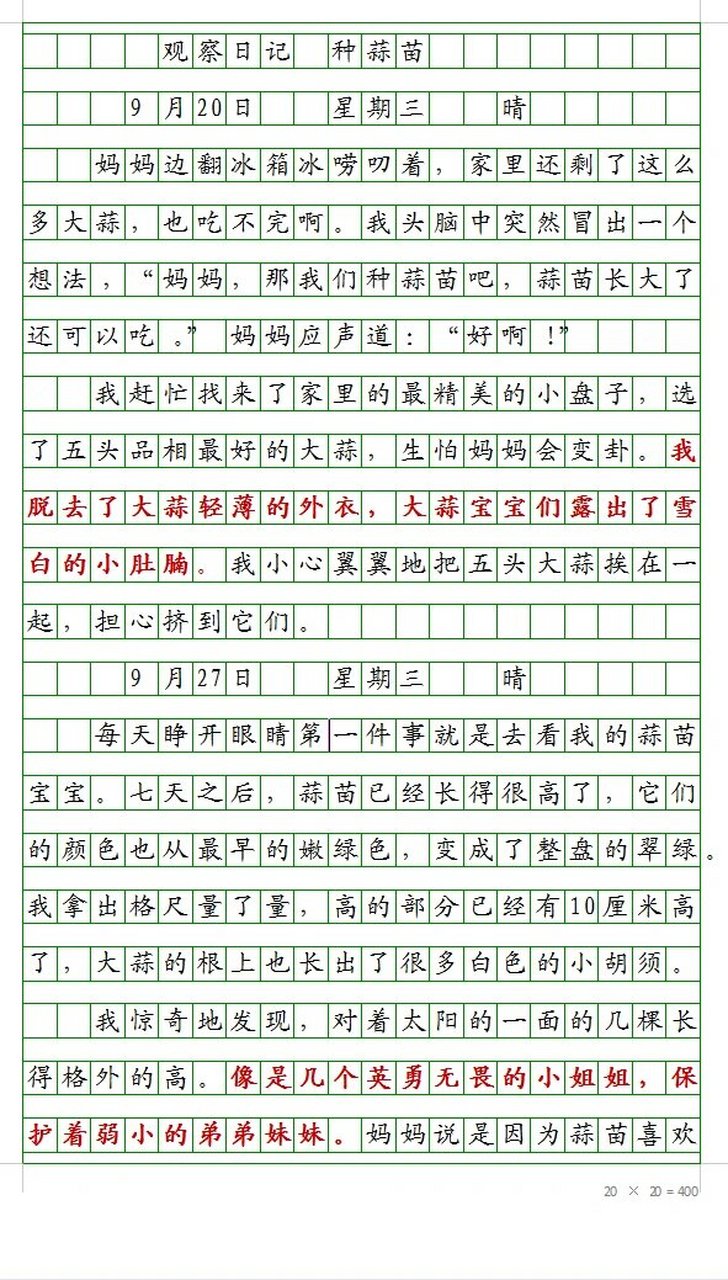 观察日记 种蒜苗
9月20日 星期三 晴
妈妈边翻冰箱冰唠叨着，家里还剩了这么
多大蒜，也吃不完啊。我头脑中突然冒出一个
想法，“妈妈，那我们种蒜苗吧，蒜苗长大了
还可以吃。” 妈妈应声道：“好啊！”
我赶忙找来了家里的最精美的小盘子，选
了五头品相最好的大蒜，生怕妈妈会变卦。我
脱去了大蒜轻薄的外衣，大蒜宝宝们露出了雪
白的小肚腩。我小心翼翼地把五头大蒜挨在一
起，担心挤到它们。
9月27日 星期三 晴
每天睁开眼睛第一件事就是去看我的蒜苗
宝宝。七天之后，蒜苗已经长得很高了，它们
的颜色也从最早的嫩绿色，变成了整盘的翠绿。
我拿出格尺量了量，高的部分已经有10厘米高
了，大蒜的根上也长出了很多白色的小胡须。
我惊奇地发现，对着太阳的一面的几棵长
得格外的高。像是几个英勇无畏的小姐姐，保
护着弱小的弟弟妹妹。妈妈说是因为蒜苗喜欢
20 × 20 = 400